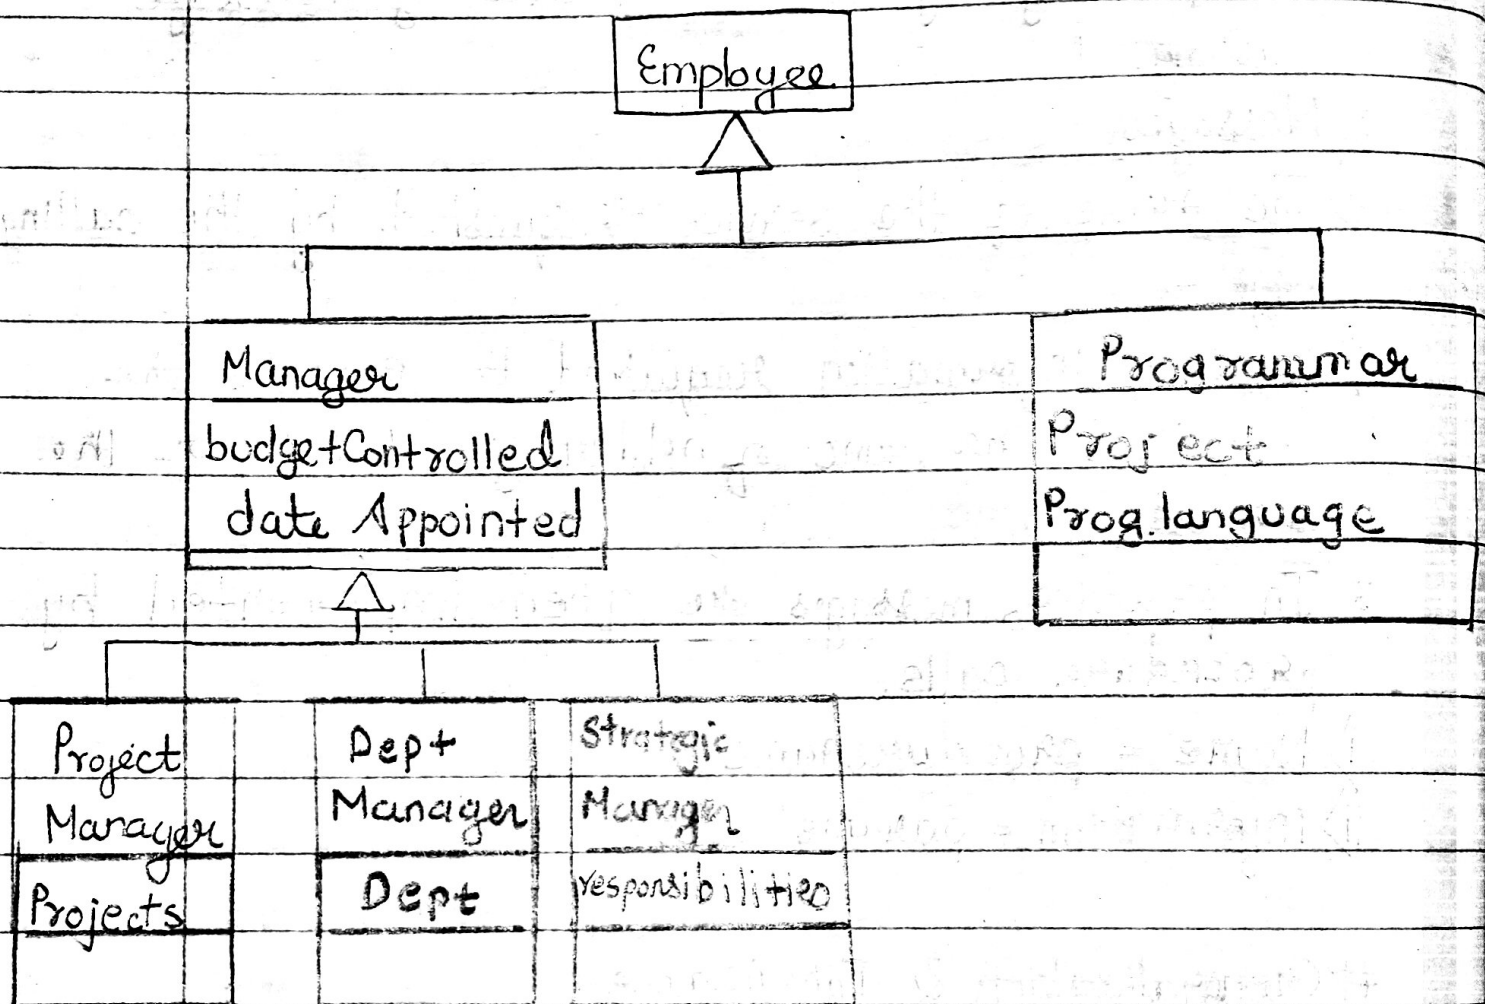 Employee
Manager
budgetControlled
date Appointed
Programmar
Project
Prog. language
Project
Manager
Projects
Dept
Manager
Dept
Strategic
Manager
responsibilities